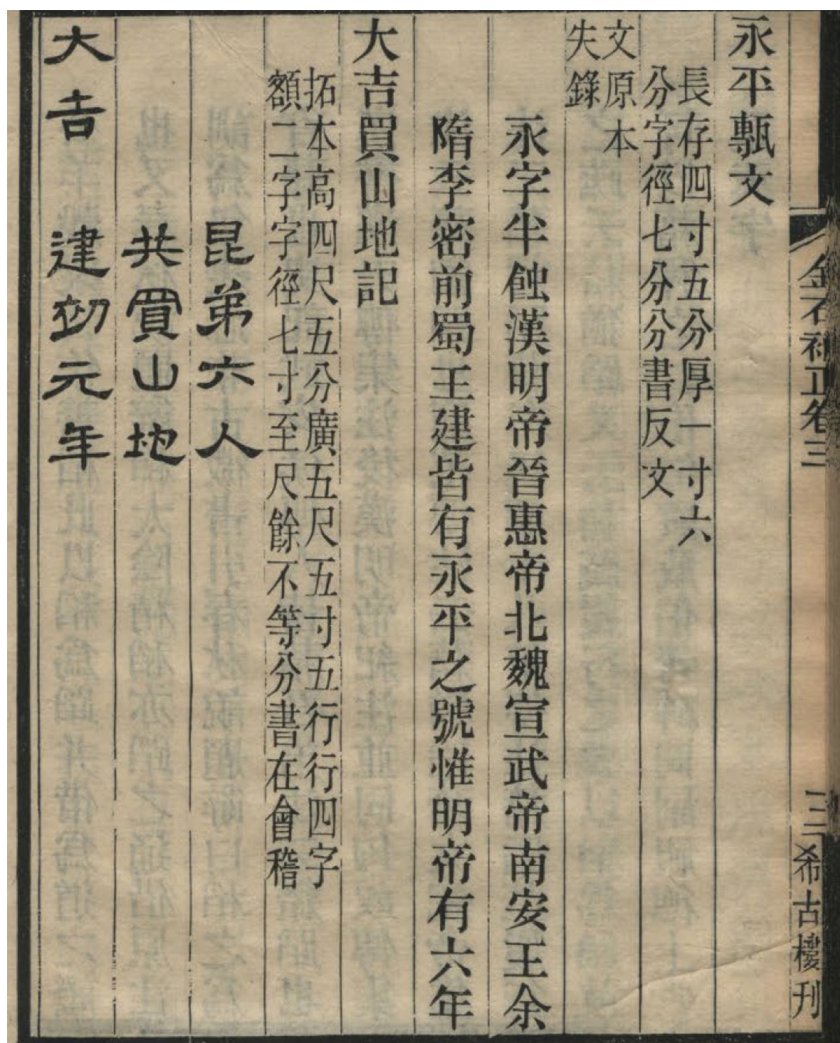 金石補正卷三
三
希古樓刊
永平甎文
長存四寸五分厚一寸六
分字徑七分分書反文
文原本
失錄
永字半蝕漢明帝晉惠帝北魏宣武帝南安王余
隋李密前蜀王建皆有永平之號惟明帝有六年
大吉買山地記
拓本高四尺五分廣五尺五寸五行行四字
額二字字徑七寸至尺餘不等分書在會稽
昆弟六人
共買山地
大吉 建初元年